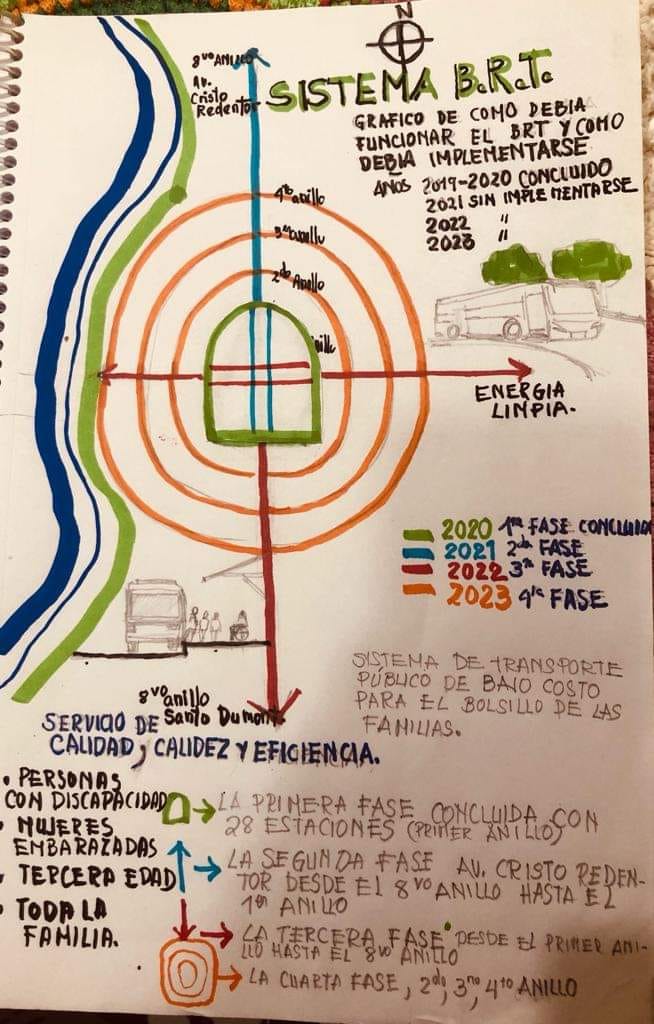 N
8vo ANILLO
Av.
Cristo
Redentor
SISTEMA B.R.T.
GRAFICO DE COMO DEBIA
FUNCIONAR EL BRT Y COMO
DEBIA IMPLEMENTARSE
AÑOS 2019-2020 CONCLUIDO
2021 SIN IMPLEMENTARSE
2022 "
2023 "
4to anillo
3er anillo
2do Anillo
ENERGIA
LINPIA.
2020 1ra FASE CONCLUIDA
2021 2da FASE
2022 3ra FASE
2023 4ta FASE
SISTEMA DE TRANSPORTE
PÚBLICO DE BAJO COSTO
PARA EL BOLSILLO DE LAS
FAMILIAS.
8vo anillo
Santo Dumont
SERVICIO DE
CALIDAD, CALIDEZ Y EFICIENCIA.
• PERSONAS
CON DISCAPACIDAD
• MUJERES
EMBARAZADAS
• TERCERA EDAD
• TODA LA
FAMILIA.
LA PRIMERA FASE CONCLUIDA CON
28 ESTACIONES (PRIMER ANILLO)
LA SEGUNDA FASE AV. CRISTO REDEN-
TOR DESDE EL 8vo ANILLO HASTA EL
1er ANILLO
LA TERCERA FASE DESDE EL PRIMER ANI-
LLO HASTA EL 8vo ANILLO
LA CUARTA FASE, 2do, 3ro, 4to ANILLO